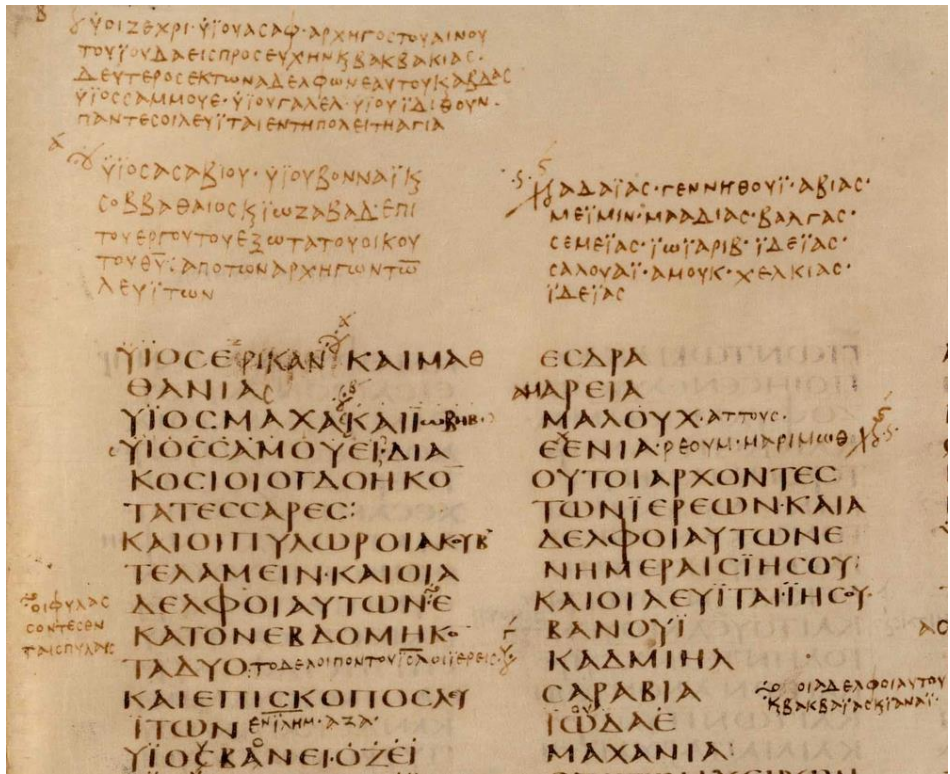 ϋοιζεχρι·ϋϊουασαφ·αρχηγοστουαινου
τουϊουδαεισπροσευχηνκβακβακιας·
δευτεροσεκτωναδελφωνεαυτουκαβδας
ϋϊοσσαμμουε·ϋϊουγαλελ·ϋϊουϊδιθουν·
παντεσοιλευϊταιεντηπολειτηαγια
ϋϊοσασαβιου·ϋϊουβονναϊκ
σοββαθαιοσκϊωζαβαδ·επι
τουεργουτουεξωτατουοικου
τουθυ:αποτωναρχηγωντω
λευϊτων
αδαϊας·γεννηθουϊ·αβιας·
μεϊμιν·μααδιας·βαλγας·
σεμεϊας·ϊωϊαριβ·ϊδεϊας·
σαλουαϊ·αμουκ·χελκιας·
ϊδεϊας
ΚΑΙΜΑΘ
ΘΑΝΙΑΣ
ΫΙΟΣΜΑΧΑ
ΫΙΟΣΣΑΜΟΥΕΙ·ΔΙΑ
ΚΟΣΙΟΙΟΓΔΟΗΚΟ
ΤΑΤΕΣΣΑΡΕΣ:
ΚΑΙΟΙΠΥΛΩΡΟΙΑΚΟΥΒ
ΤΕΛΑΜΕΙΝ·ΚΑΙΟΙΑ
οιφυλας
σοντεσεν
ταισπυλαις
ΔΕΛΦΟΙΑΥΤΩΝ·Ε
ΚΑΤΟΝΕΒΔΟΜΗΚΟ
ΤΑΔΥΟ·τοδελοιποντουιηλοιϊερεις
ΚΑΙΕΠΙΣΚΟΠΟΣΛΥ
ΪΤΩΝενιλημ·αζα·
ΫΙΟΣΒΑΝΕΙ·ΟΖΕΪ
ΕΣΔΡΑ
ΑΜΑΡΕΙΑ
ΜΑΛΟΥΧ·αττους·
ΕΕΝΙΑ·ρεουμ·μαριμωθ
ΟΥΤΟΙΑΡΧΟΝΤΕΣ
ΤΩΝΪΕΡΕΩΝ·ΚΑΙΑ
ΔΕΛΦΟΙΑΥΤΩΝΕ
ΝΗΜΕΡΑΙΣΪΗΣΟΥ·
ΚΑΙΟΙΛΕΥΪΤΑΙ·ΪΗΣΟΥ·
ΒΑΝΟΥΪ
ΚΑΔΜΙΗΛ
ΣΑΡΑΒΙΑ
οιαδελφοιαυτου
κβακβαϊασκϊαναϊ·
ΪΩΔΑΕ
ΜΑΧΑΝΙΑ: